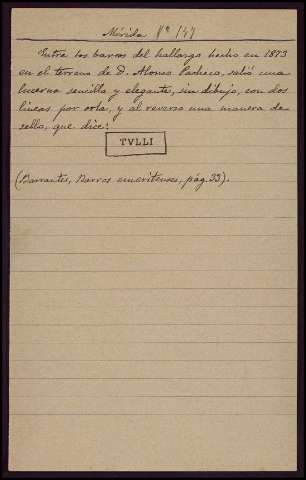 Mérida Nº 147
Entre los barros del hallazgo hecho en 1873
en el terreno de D. Alonso Pacheco, salió una
lucerna sencilla y elegante, sin dibujo, con dos
lineas por orla, y al reverso una manera de
sello, que dice:
TVLLI
(Barrantes, Barros emeritenses, pág. 33).